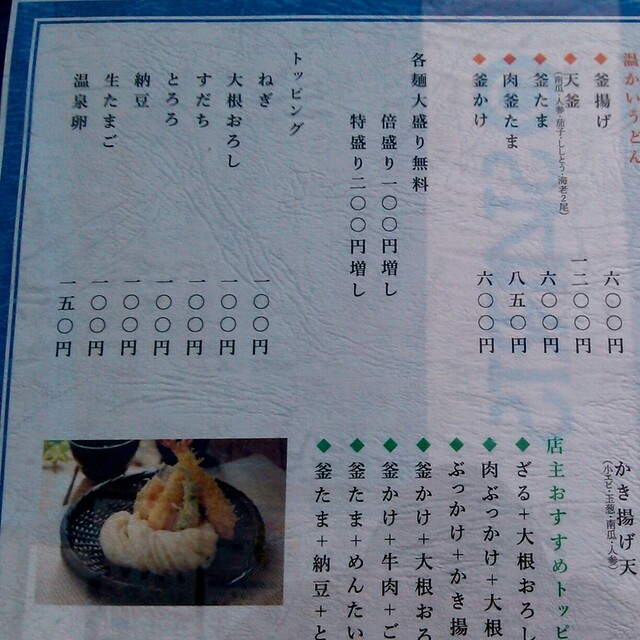 温かいうどん
釜揚げ 六〇〇円
天釜 一二〇〇円
(南瓜・人参・茄子・ししとう・海老2尾)
釜たま 六〇〇円
肉釜たま 八五〇円
釜かけ 六〇〇円
各麺大盛り無料
倍盛り一〇〇円増し
特盛り二〇〇円増し
トッピング
ねぎ 一〇〇円
大根おろし 一〇〇円
すだち 一〇〇円
とろろ 一〇〇円
納豆 一〇〇円
生たまご 一〇〇円
温泉卵 一五〇円
かき揚げ天
(小エビ・玉葱・南瓜・人参)
店主おすすめトッピ
ざる+大根おろし
肉ぶっかけ+大根
ぶっかけ+かき揚
釜かけ+大根おろ
釜かけ+牛肉+ご
釜たま+めんたい
釜たま+納豆+と